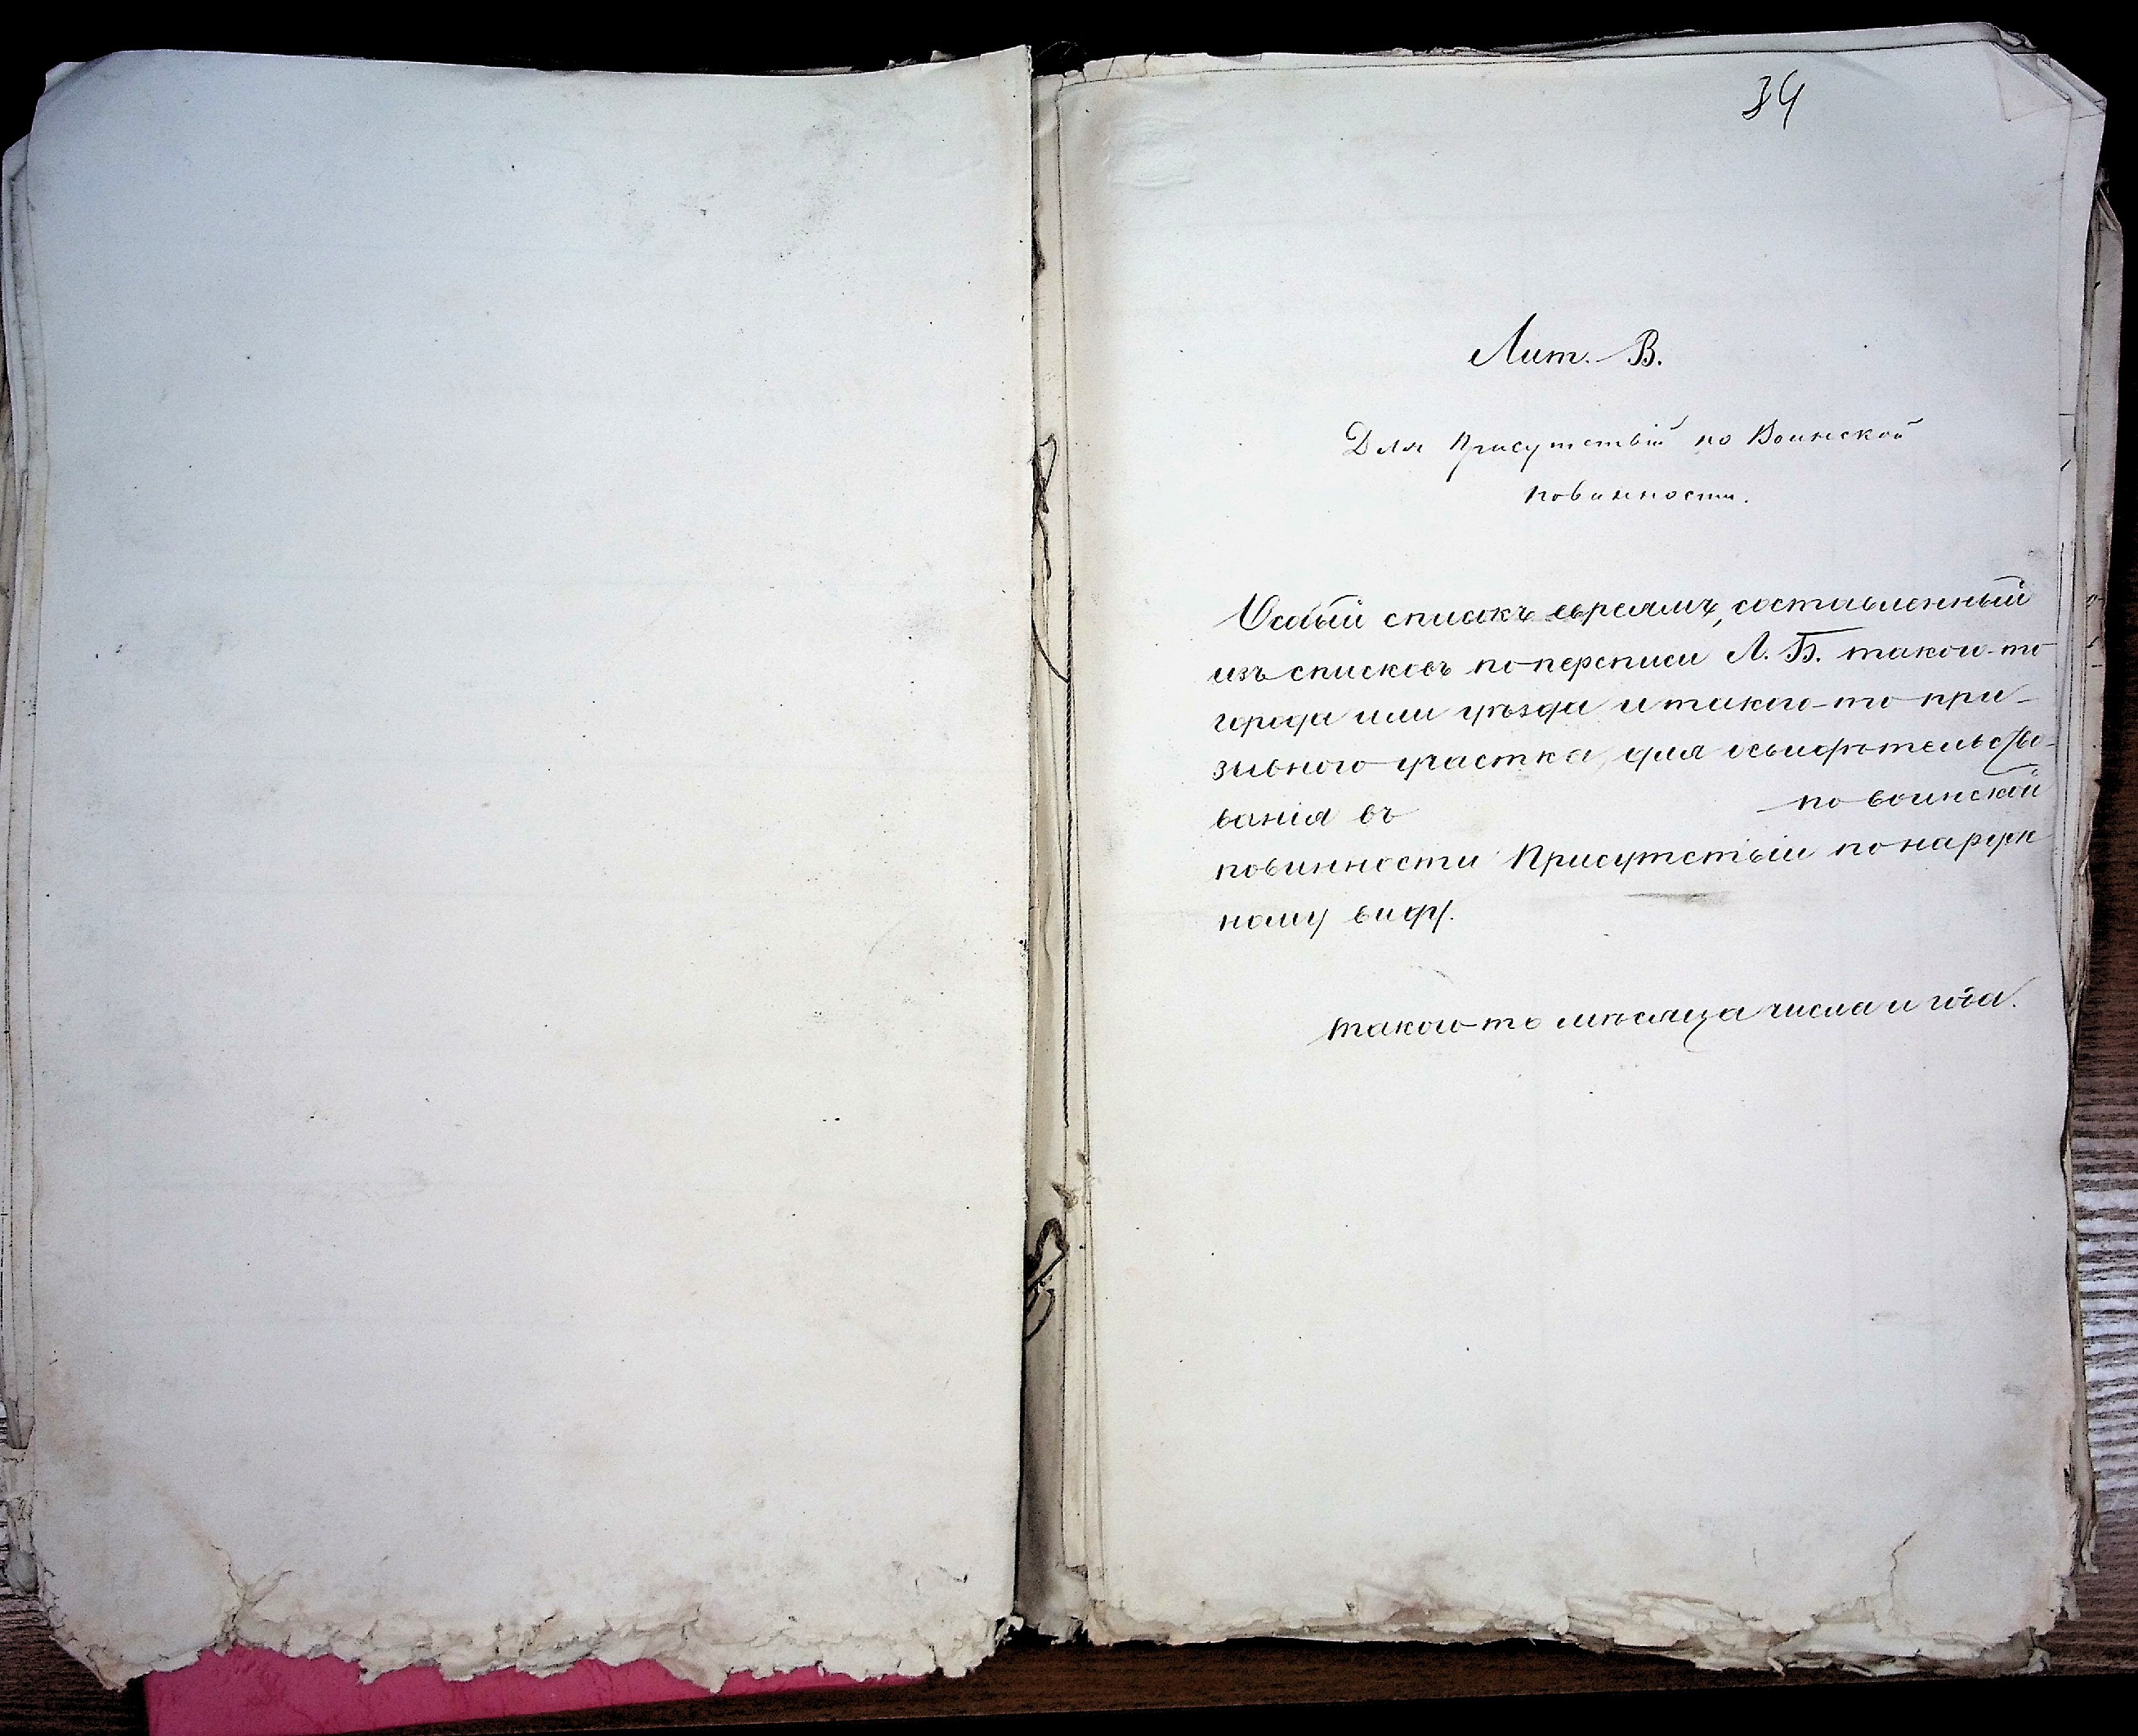 34
Лит. В.
Для Присутствій по Воинской
повинности.
Особый списокъ евреямъ, составленный
изъ списковъ по переписи Л. Б. такого-то
города или уѣзда и такого-то при-
зывного участка, для освидѣтельство-
ванія въ по воинской
повинности Присутствіи по наруж
ному виду.
такого-то мѣсяца числа и года.